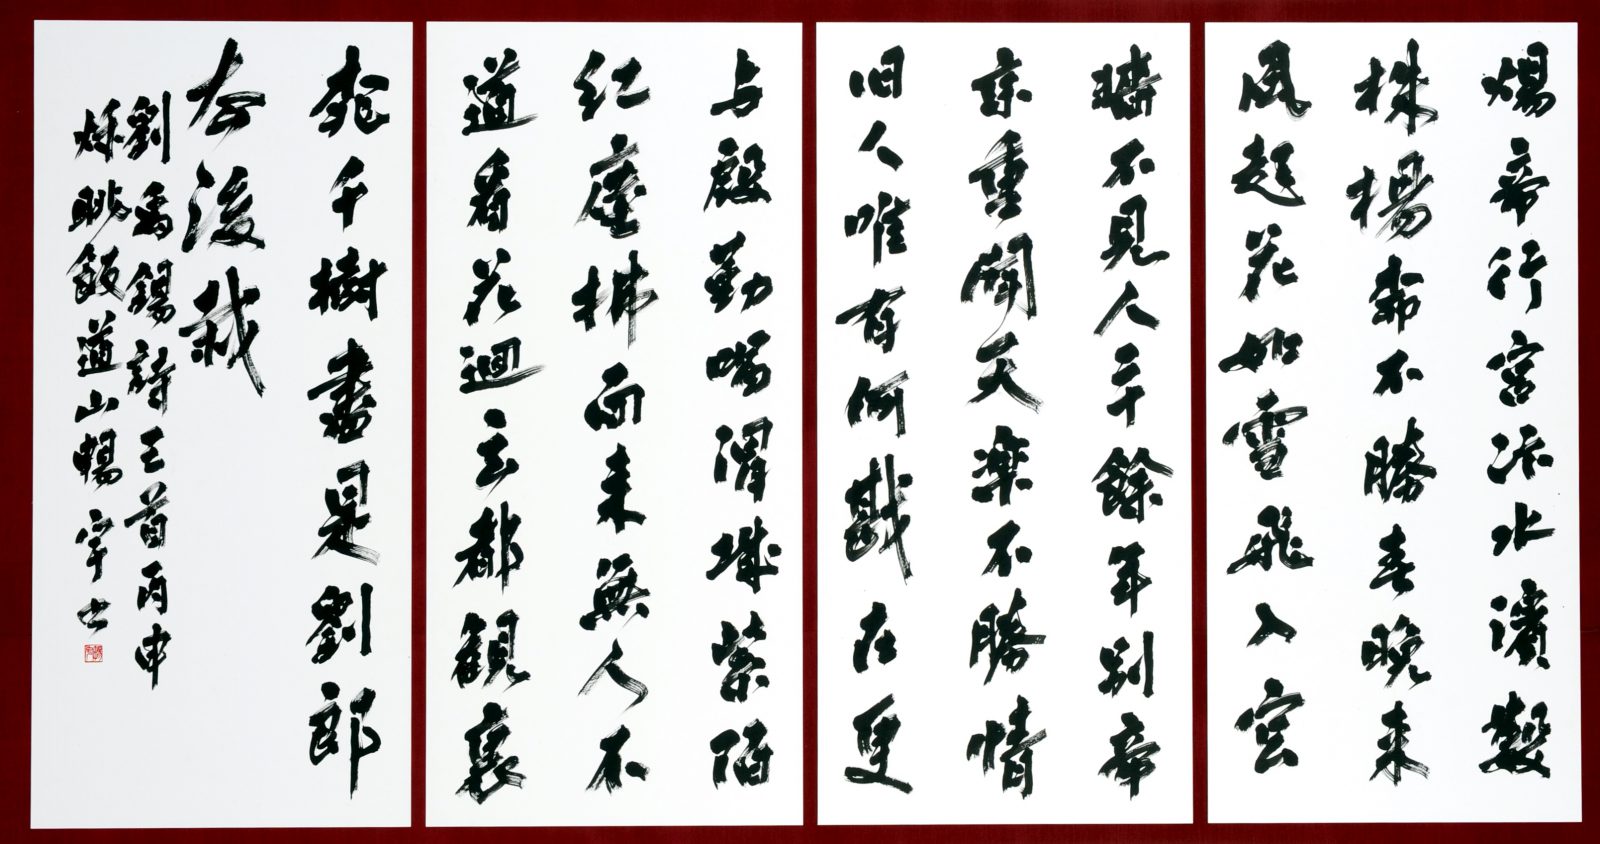 煬帝行宮汴水濱數
株楊柳不勝春晚来
風起花如雪飛入宮
墻不見人二十餘年別帝
京重聞天楽不勝情
旧人唯有何戡在更
与殷勤唱渭城紫陌
紅塵拂面来無人不
道看花迴玄都観裏
桃千樹盡是劉郎
去後栽
劉禹錫詩三首丙申
秌眺飯道山暢宇书